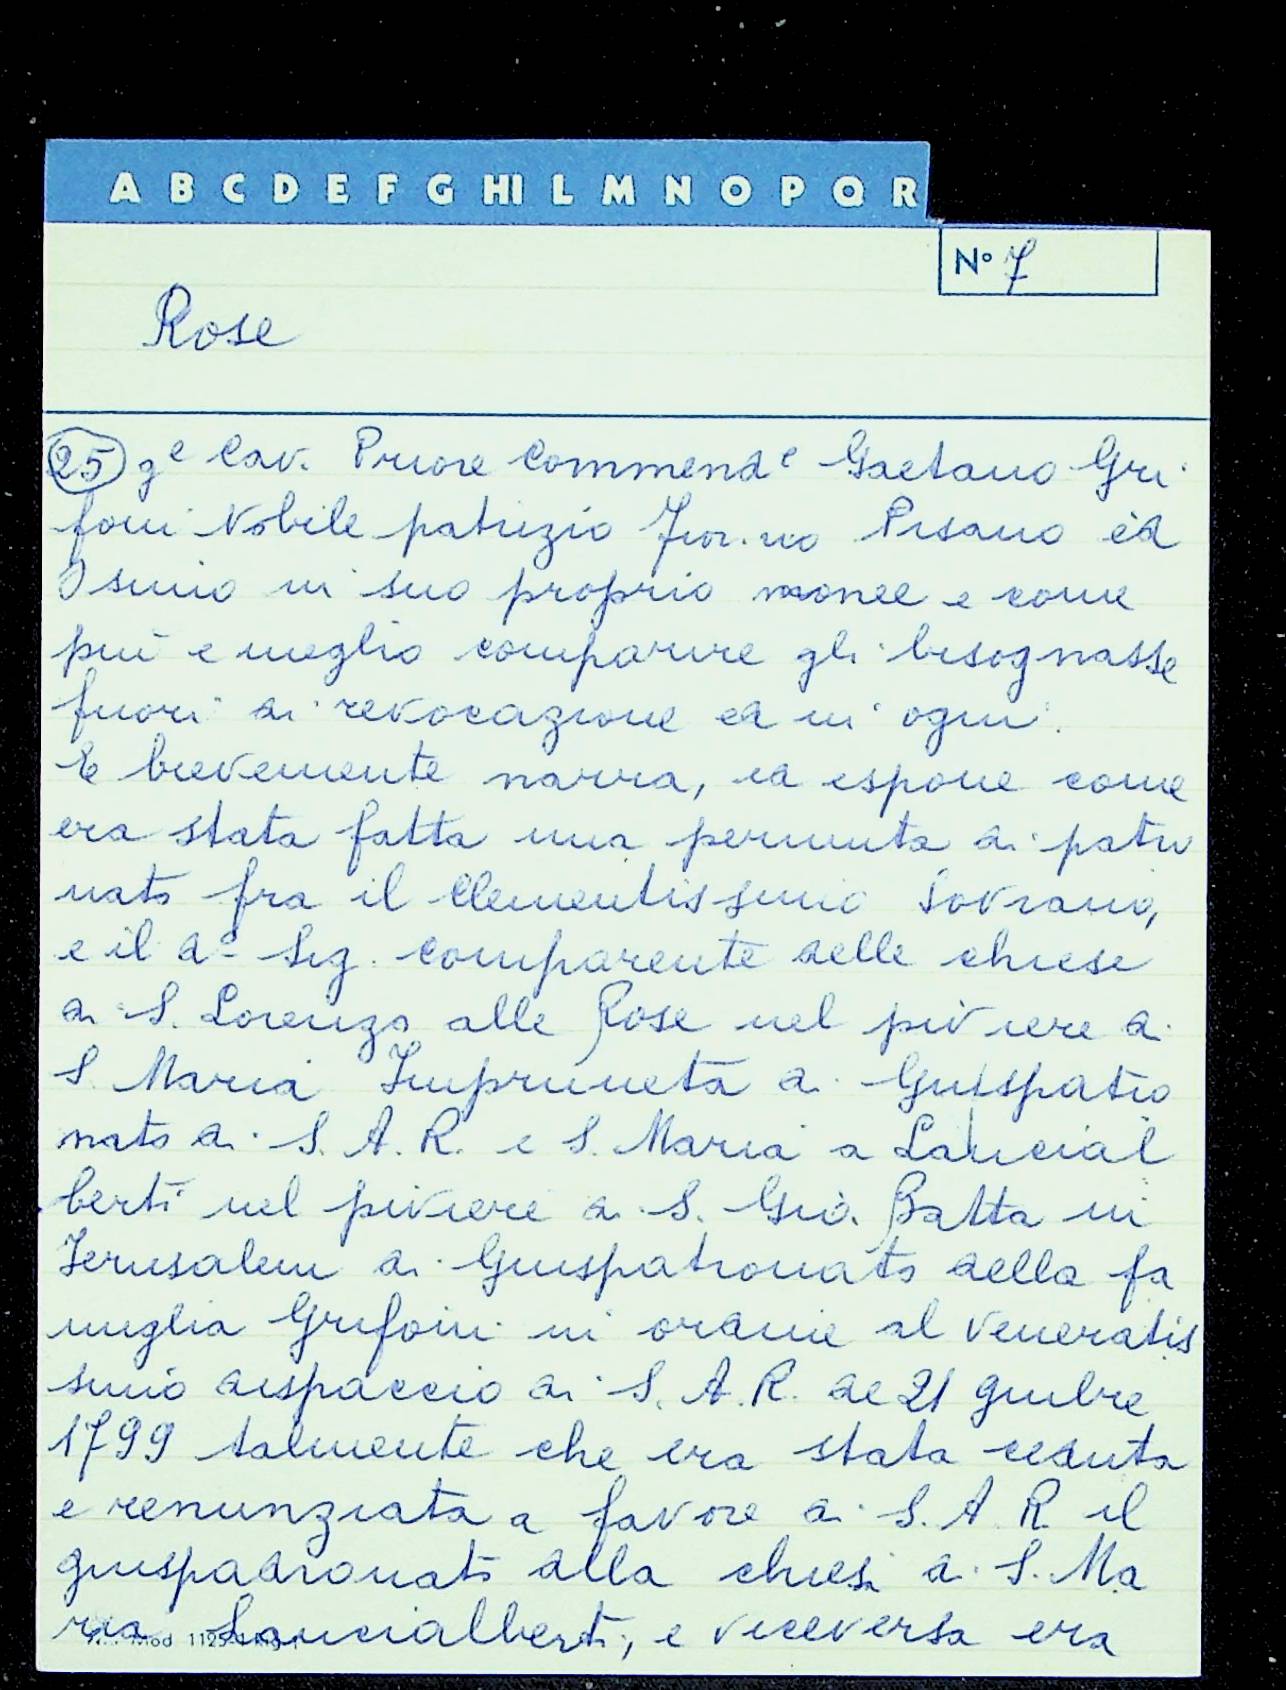 A B C D E F G HI L M N O P Q R
N° 7
Rose
25 ge Cav. Priore Commende Gaetano Gri
foni Nobile patrizio Fior.no Pisano ed
Osimo in suo proprio nome e come
più e meglio comparire gli bisognasse
fuori di revocazione ed in ogni.
E brevemente narra, ed espone come
era stata fatta una permuta di patro
nato fra il Clementissimo Sovrano,
e il do Sig. comparente delle chiese
di S. Lorenzo alle Rose nel piviere di
S Maria Impruneta di Giuspatro
nato di S. A. R. e S. Maria a Lancial
berti nel piviere di S. Gio. Batta in
Jerusalem di Giuspatronato della fa
miglia Grifoni in ordine al veneratis
simo dispaccio di S. A. R. de 21 9mbre
1799 talmente che era stata ceduta
e renunziata a favore di S. A. R. il
giuspadronato della chiesa di S. Ma
ria Lancialberti, e viceversa era
Mod 1125